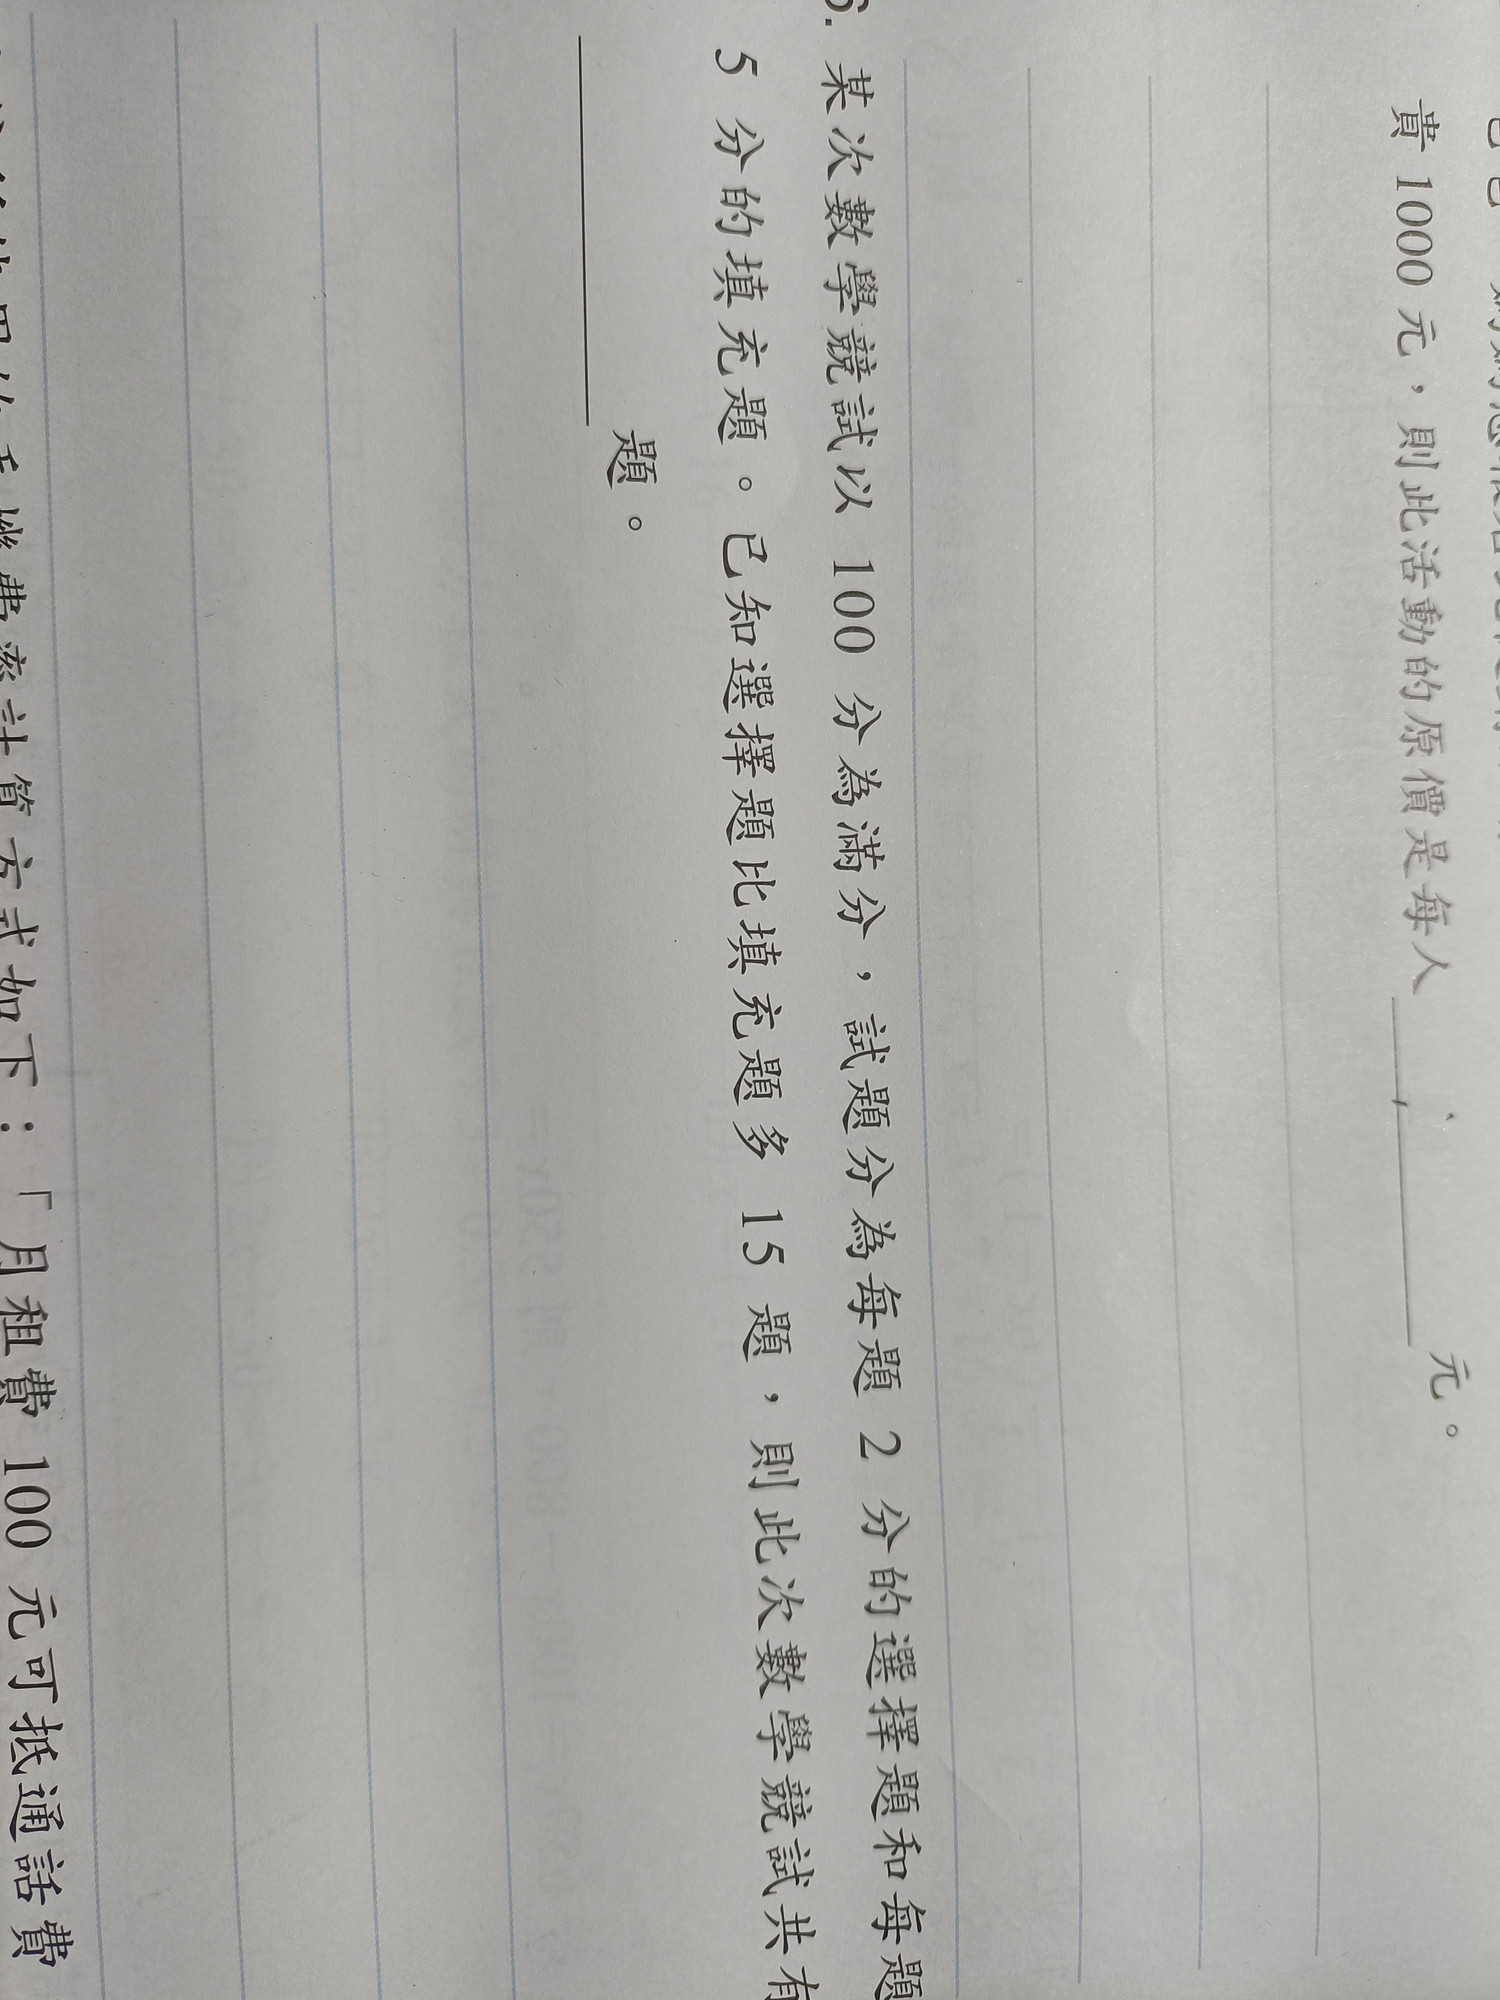 貴 1000 元，則此活動的原價是每人 元。
6. 某次數學競試以 100 分為滿分，試題分為每題 2 分的選擇題和每題
5 分的填充題。已知選擇題比填充題多 15 題，則此次數學競試共有
題。
費率計算方式如下：「月租費 100 元可抵通話費